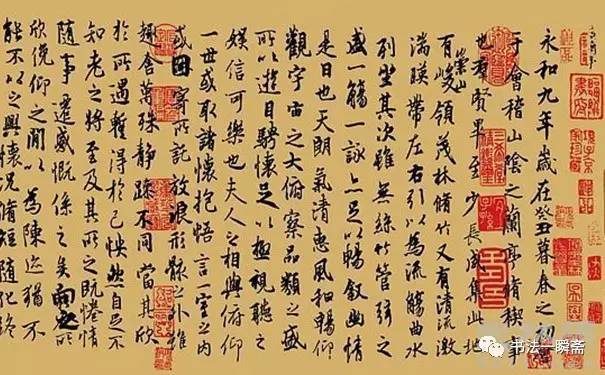 永和九年歲在癸丑暮春之初會
于會稽山陰之蘭亭脩稧事
也羣賢畢至少長咸集此地
有崇山峻領茂林脩竹又有清流激
湍暎帶左右引以為流觴曲水
列坐其次雖無絲竹管弦之
盛一觴一詠亦足以暢敘幽情
是日也天朗氣清惠風和暢仰
觀宇宙之大俯察品類之盛
所以遊目騁懷足以極視聽之
娛信可樂也夫人之相與俯仰
一世或取諸懷抱悟言一室之內
或因寄所託放浪形骸之外雖
趣舍萬殊靜躁不同當其欣
於所遇蹔得於己怏然自足不
知老之將至及其所之既惓情
隨事遷感慨係之矣向之所
欣俛仰之閒以為陳迹猶不
能不以之興懷況脩短隨化終
书法一瞬斋